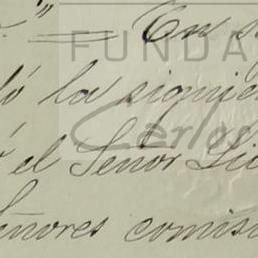 " = En s
FUNDA
ló la siguie
Carlos
el Señor Lic
eñores comisi